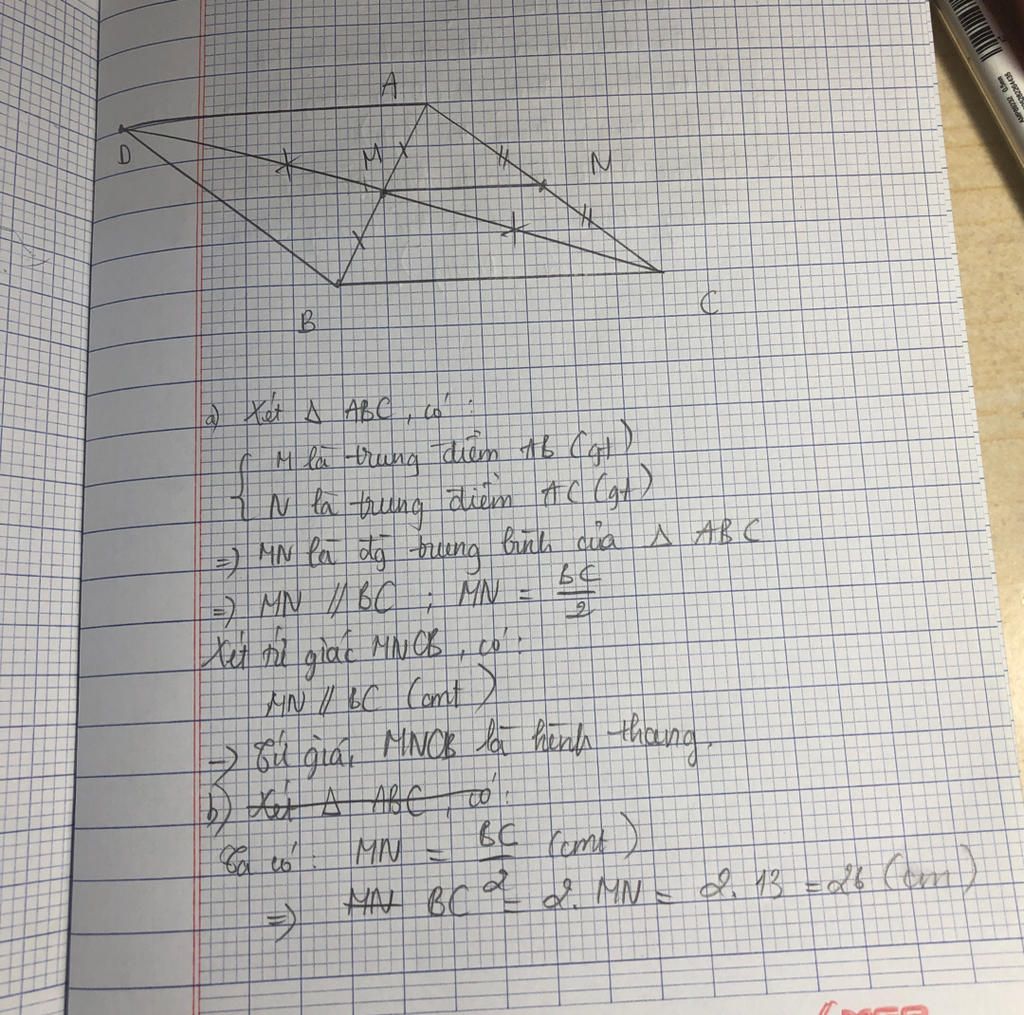 A
D
M
N
B
C
a) Xét Δ ABC, có:
M là trung điểm AB (gt)
N là trung điểm AC (gt)
=) MN là đg trung bình của Δ ABC
=) MN // BC ; MN = BC/2
Xét tứ giác MNCB, có:
MN // BC (cmt)
=) Tứ giác MNCB là hình thang.
b) Xét Δ ABC, có:
Ta có: MN = BC/2 (cmt)
=) MN BC = 2. MN = 2. 13 = 26 (cm)